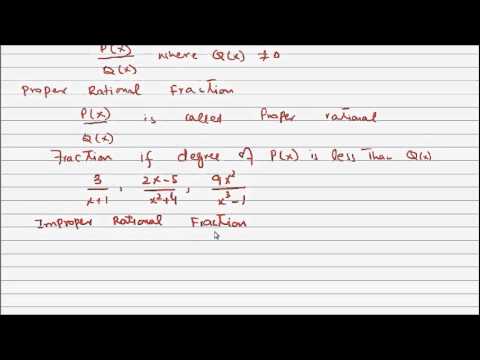 P(x)/Q(x) where Q(x) ≠ 0
Proper Rational Fraction
P(x)/Q(x) is called Proper rational
Fraction if degree of P(x) is less than Q(x)
3/(x+1), (2x-5)/(x²+4), 9x²/(x³-1)
Improper Rational Fraction